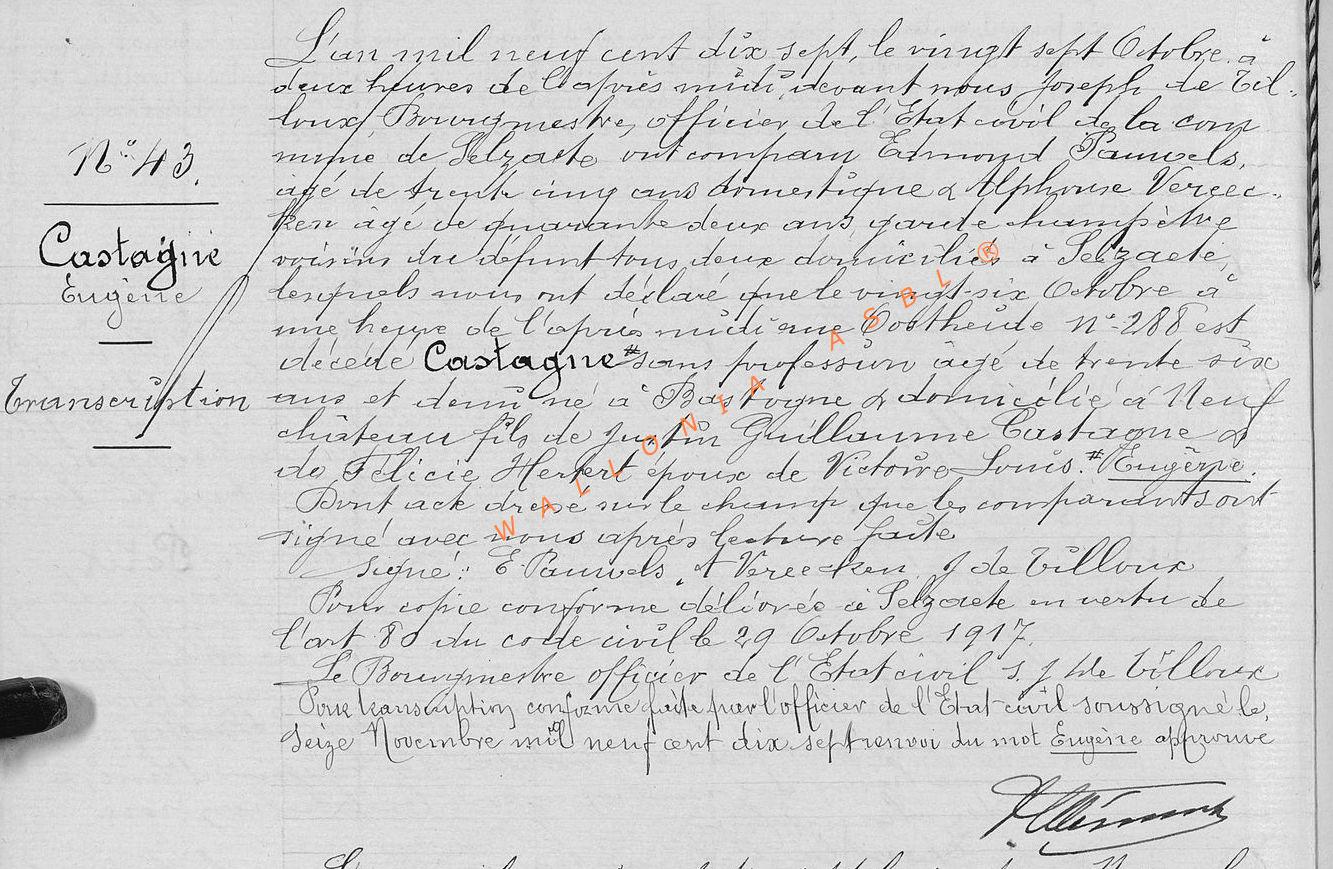 L'an mil neuf cent dix sept, le vingt sept Octobre à
deux heures de l'après midi, devant nous Joseph de Til-
loux, Bourgmestre, officier de l'Etat civil de la com
mune de Selzaete ont comparu Edmond Pauwels,
âgé de trente cinq ans domestique & Alphonse Vereec-
ken âgé de quarante deux ans, garde champêtre
voisins du défunt tous deux domiciliés à Selzaete,
lesquels nous ont déclaré que le vingt-six Octobre à
une heure de l'après midi rue Oostheide N° 288 est
décédé Castagne # sans profession âgé de trente six
ans et demi né à Bastogne & domicilié à Neuf
château fils de Justin Guillaume Castagne &
de Félicie Herkert époux de Victoire Louis. # Eugène.
Dont acte dressé sur le champ que les comparants ont
signé avec nous après lecture faite
Signé: E Pauwels, A Vereecken, J de Tilloux
Pour copie conforme délivrée à Selzaete en vertu de
l'art 80 du code civil le 29 Octobre 1917.
Le Bourgmestre officier de l'Etat civil s. J de Tilloux
Pour transcription conforme faite par l'officier de l'Etat-civil soussigné le,
Seize Novembre mil neuf cent dix sept renvoi du mot Eugène approuvé
N° 43.
Castagne
Eugène
Transcription
WALLONIA ASBL ®